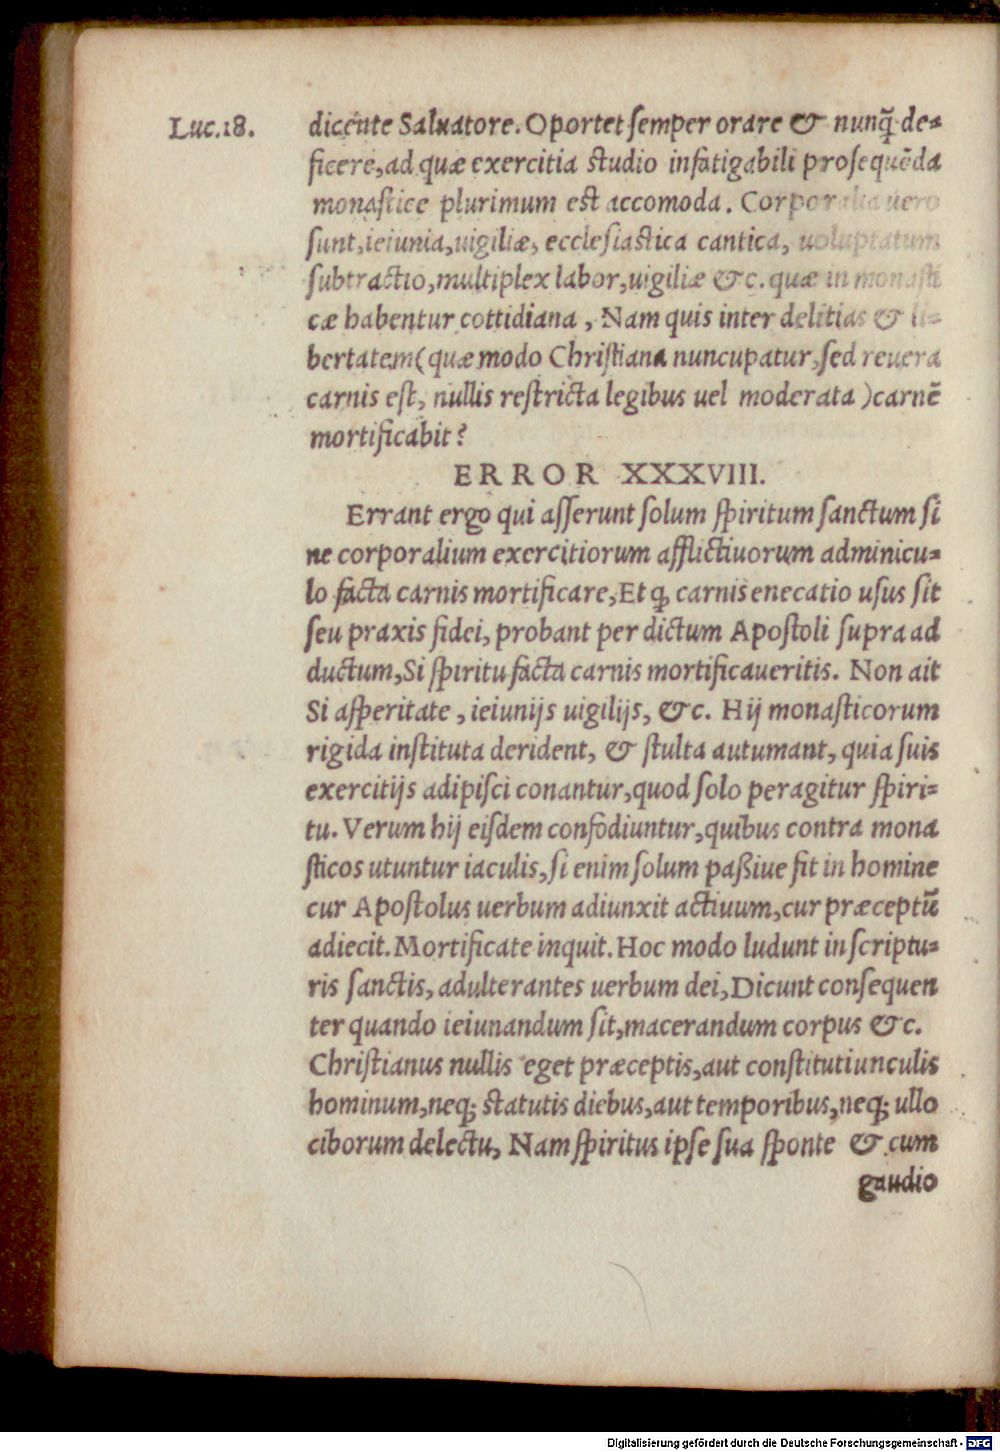 Luc.18.
dicente Saluatore. Oportet semper orare & nunq̃ de-
ficere, ad quæ exercitia studio infatigabili prosequẽda
monastice plurimum est accomoda. Corporalia uero
sunt, ieiunia, uigiliæ, ecclesiastica cantica, uoluptatum
subtractio, multiplex labor, uigiliæ &c. quæ in monasti
cæ habentur cottidiana, Nam quis inter delitias & li-
bertatem (quæ modo Christiana nuncupatur, sed reuera
carnis est, nullis restricta legibus uel moderata) carnẽ
mortificabit?
ERROR XXXVIII.
Errant ergo qui asserunt solum spiritum sanctum si
ne corporalium exercitiorum afflictiuorum adminicu-
lo facta carnis mortificare, Et ꝙ carnis enecatio usus sit
seu praxis fidei, probant per dictum Apostoli supra ad
ductum, Si spiritu facta carnis mortificaueritis. Non ait
Si asperitate, ieiunijs uigilijs, &c. Hij monasticorum
rigida instituta derident, & stulta autumant, quia suis
exercitijs adipisci conantur, quod solo peragitur spiri-
tu. Verum hij eisdem confodiuntur, quibus contra mona
sticos utuntur iaculis, si enim solum paßiue fit in homine
cur Apostolus uerbum adiunxit actiuum, cur præceptũ
adiecit. Mortificate inquit. Hoc modo ludunt in scriptu-
ris sanctis, adulterantes uerbum dei, Dicunt consequen
ter quando ieiunandum sit, macerandum corpus &c.
Christianus nullis eget præceptis, aut constitutiunculis
hominum, neq; statutis diebus, aut temporibus, neq; ullo
ciborum delectu, Nam spiritus ipse sua sponte & cum
gaudio
Digitalisierung gefördert durch die Deutsche Forschungsgemeinschaft - DFG